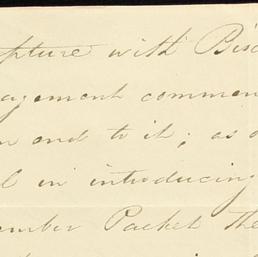 pture with Bisc
agement commen
n end to it; as a
l in introducing
ember Packet The